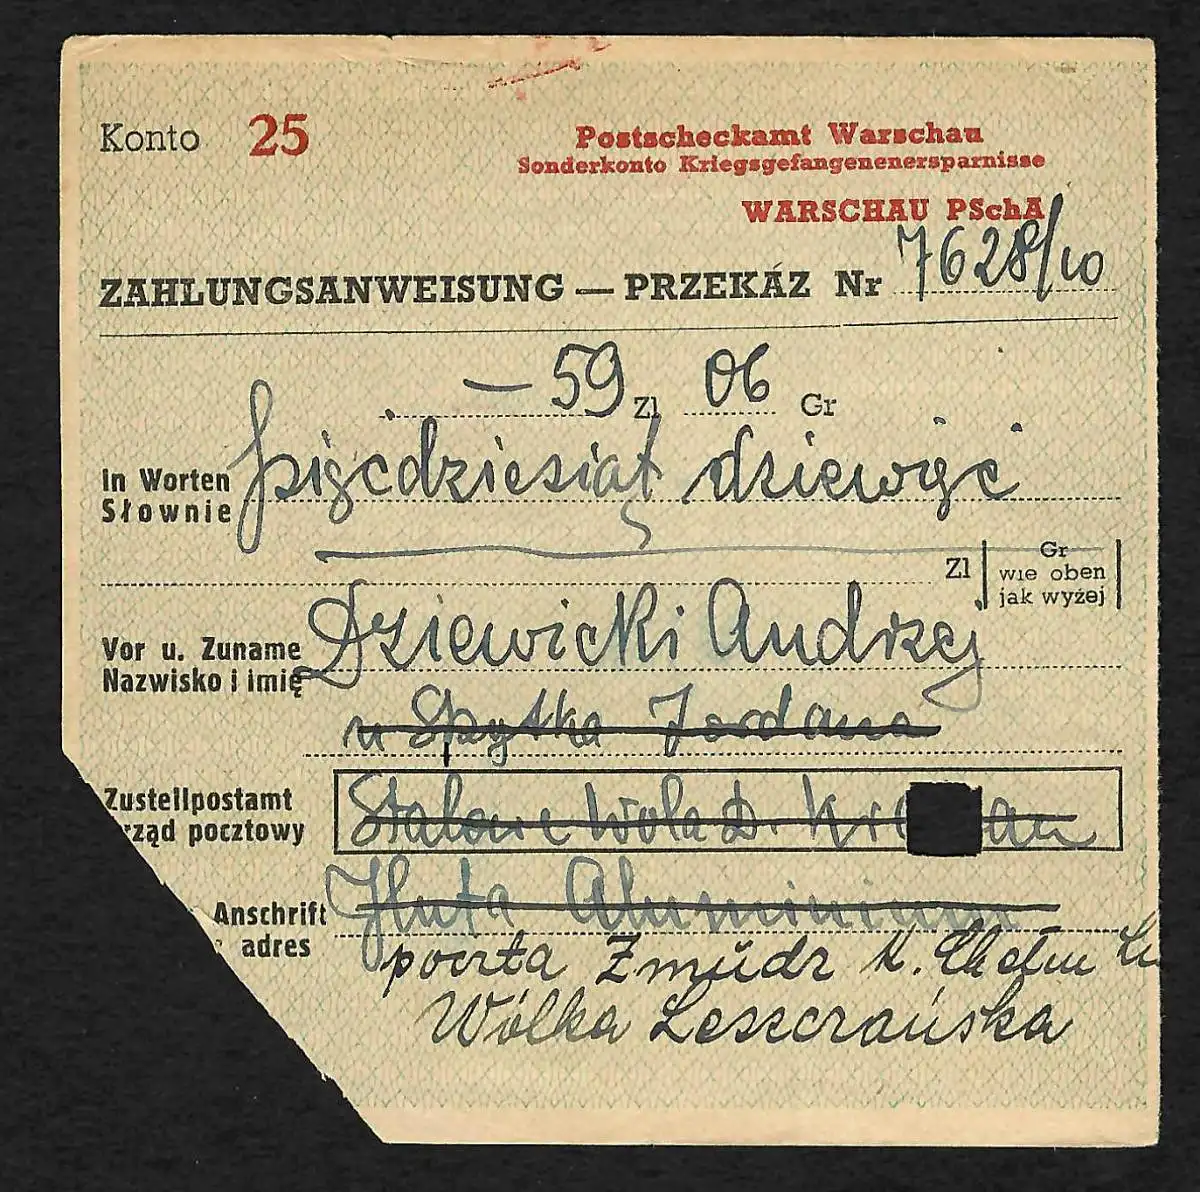 Konto 25
Postscheckamt Warschau
Sonderkonto Kriegsgefangenenersparnisse
WARSCHAU PSchA
ZAHLUNGSANWEISUNG — PRZEKÁZ Nr 7628/10
— 59 Zl 06 Gr
In Worten
Słownie
pięćdziesiąt dziewięć
Zl
Gr
wie oben
jak wyżej
Vor u. Zuname
Nazwisko i imię
Dziewicki Andrzej
u Spytka Jordana
Zustellpostamt
rząd pocztowy
Stalowe Wola D.
Anschrift
adres
Huta Aluminium
poczta Żmudź k. Chełm
Wólka Leszczańska